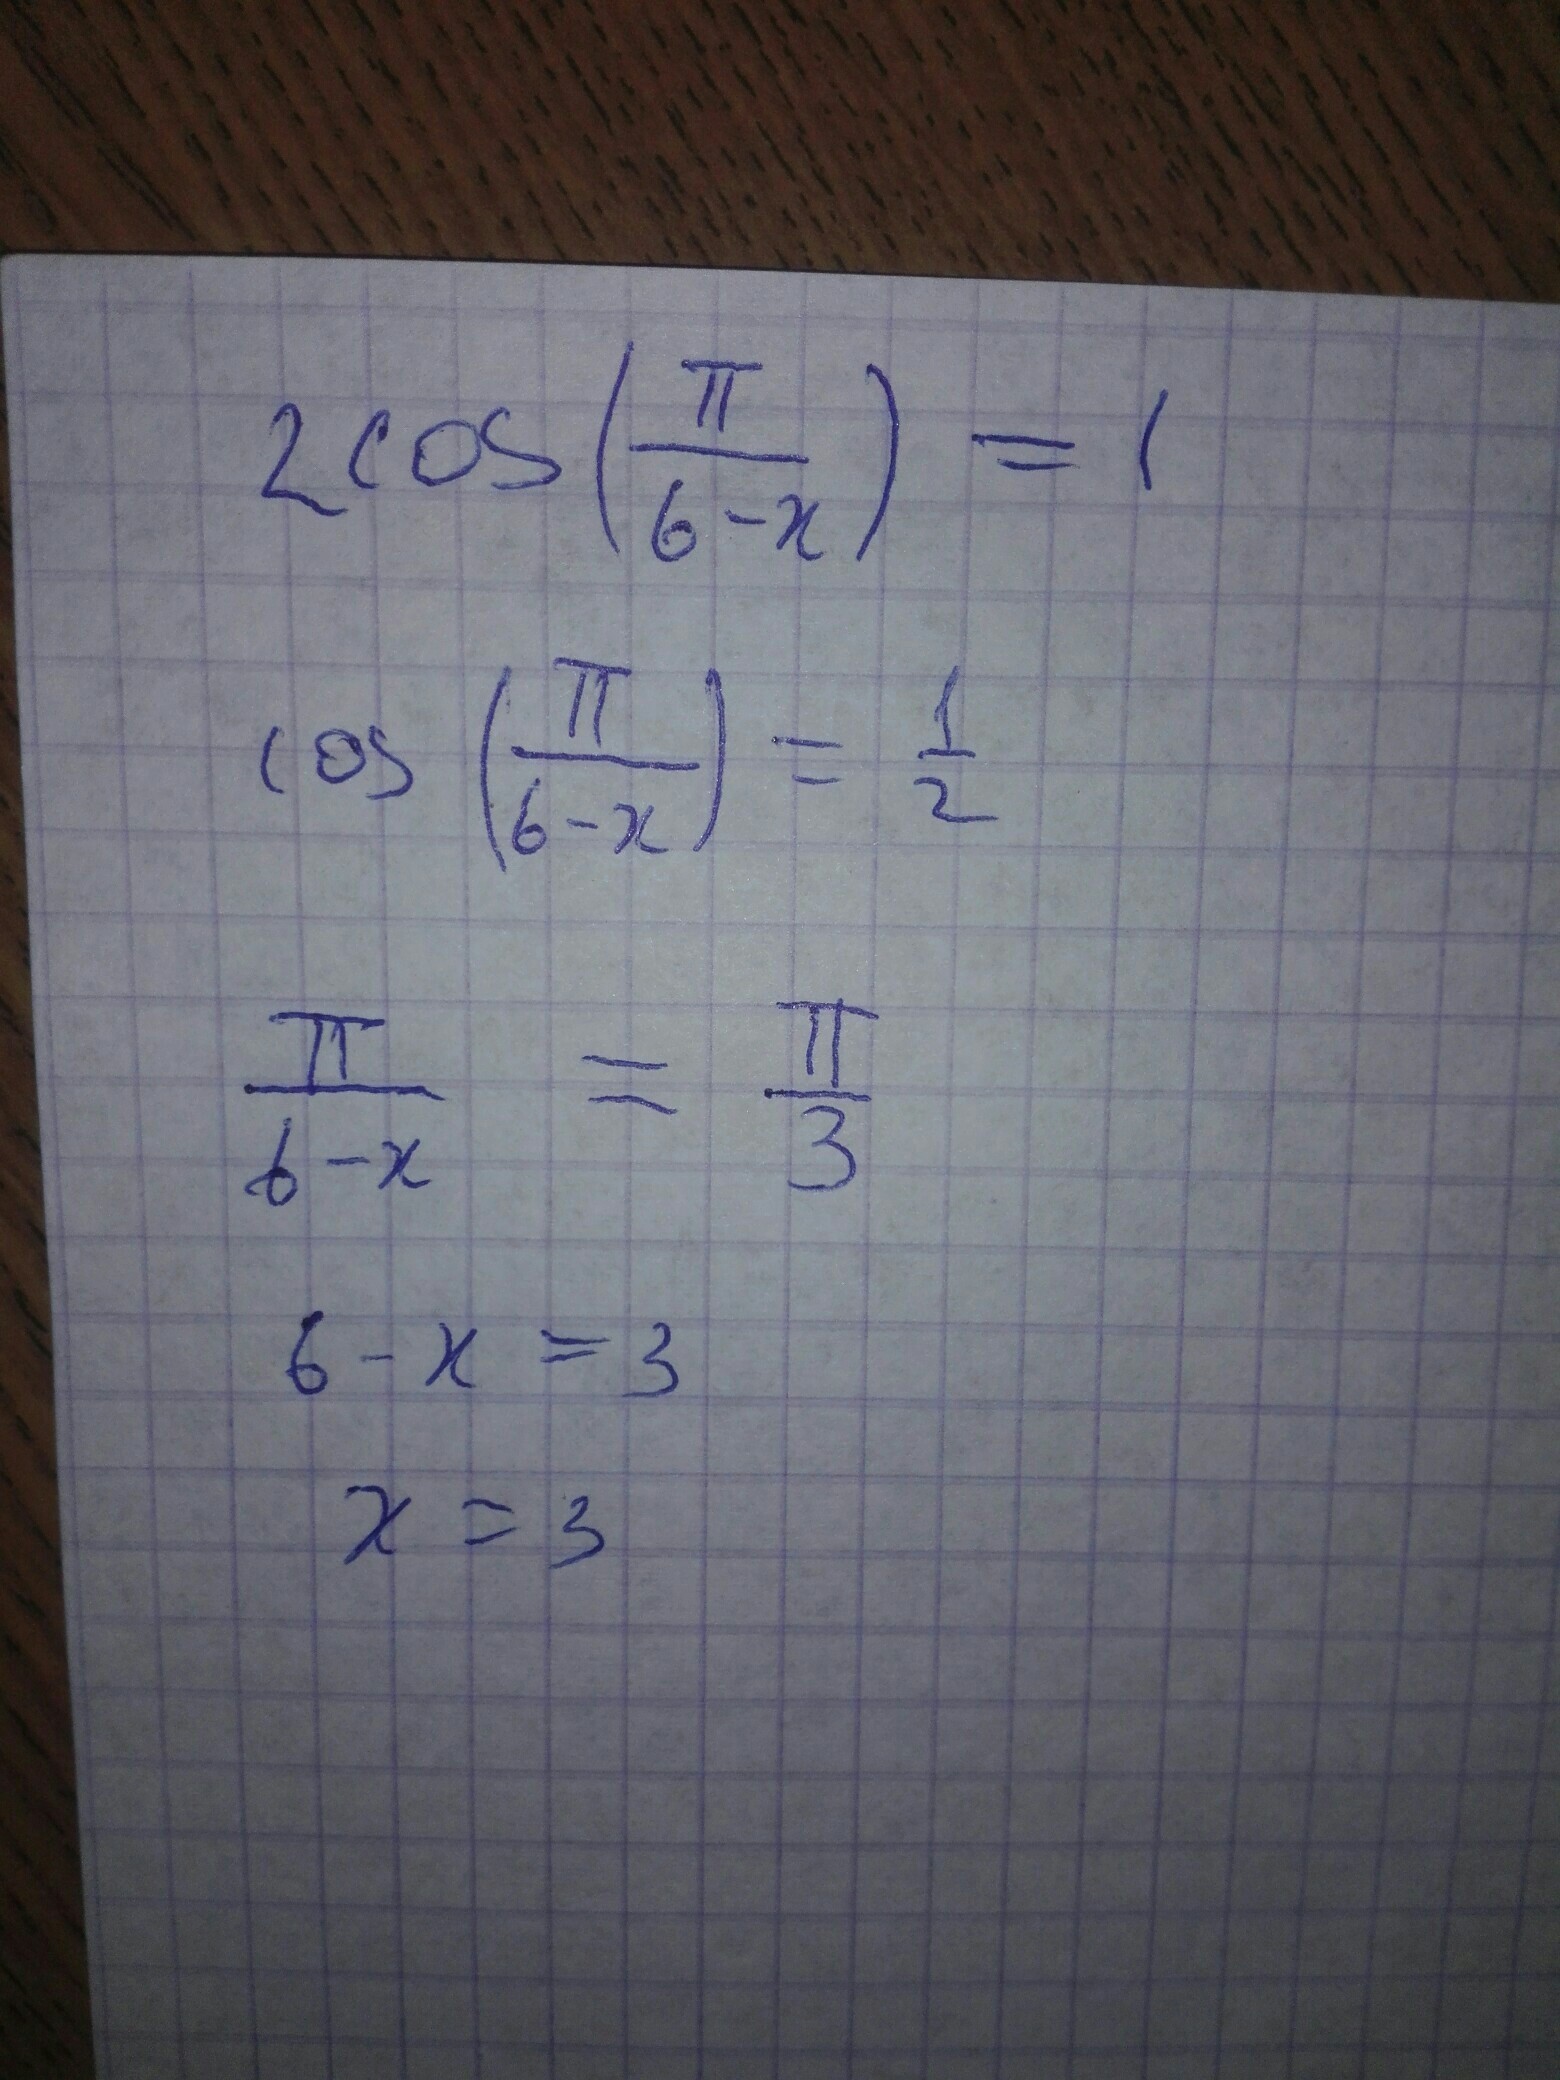 2cos(π/(6-x)) = 1
cos(π/(6-x)) = 1/2
π/(6-x) = π/3
6-x=3
x=3